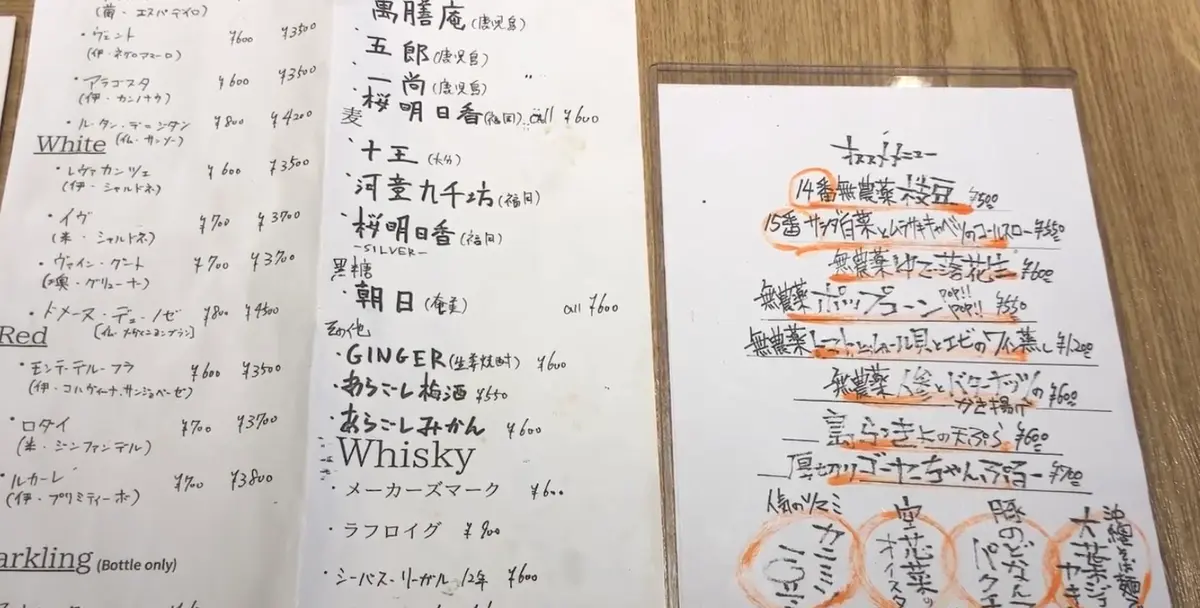 (葡・エスパデイロ)
・ヴェント ¥600 ¥3500
(伊・ネグロアマーロ)
・アラゴスタ ¥600 ¥3500
(伊・カンノナウ)
・ル・タン・デ・ジタン ¥800 ¥4200
White
・レヴァカンツェ ¥600 ¥3500
(伊・シャルドネ)
・イヴ ¥700 ¥3700
(米・シャルドネ)
・ヴァイン・グート ¥700 ¥3700
・ドメーヌ・デュ・ノゼ ¥800 ¥4500
Red
・モンテ・テル・フラ ¥600 ¥3500
・ロダイ ¥700 ¥3700
(米・ジンファンデル)
・ルカーレ ¥700 ¥3800
(伊・プリミティーボ)
arkling (Bottle only)
萬膳庵 (鹿児島)
・五郎 (鹿児島)
・一尚 (鹿児島)
・桜明日香 (福岡) all ¥600
麦
・十王 (大分)
・河童九千坊 (福岡)
・桜明日香 (福岡)
-SILVER-
黒糖
・朝日 (奄美) all ¥600
その他
・GINGER (生姜焼酎) ¥600
・あらごし梅酒 ¥550
・あらごしみかん ¥600
Whisky
・メーカーズマーク ¥600
・ラフロイグ ¥900
・シーバス・リーガル 12年 ¥600
オススメメニュー
14番 無農薬枝豆 ¥500
15番 サラダ白菜とムラサキキャベツのコールスロー ¥550
無農薬ゆで落花生 ¥600
無農薬ポップコーン POP!! POP!! ¥550
無農薬トマトとムール貝とエビのワイン蒸し ¥1,200
無農薬人参とバターナッツのかき揚げ ¥600
島らっきょの天ぷら ¥600
厚切りゴーヤーちゃんぷるー ¥700
人気のツマミ
空芯菜のオイスタ
沖縄そば麺